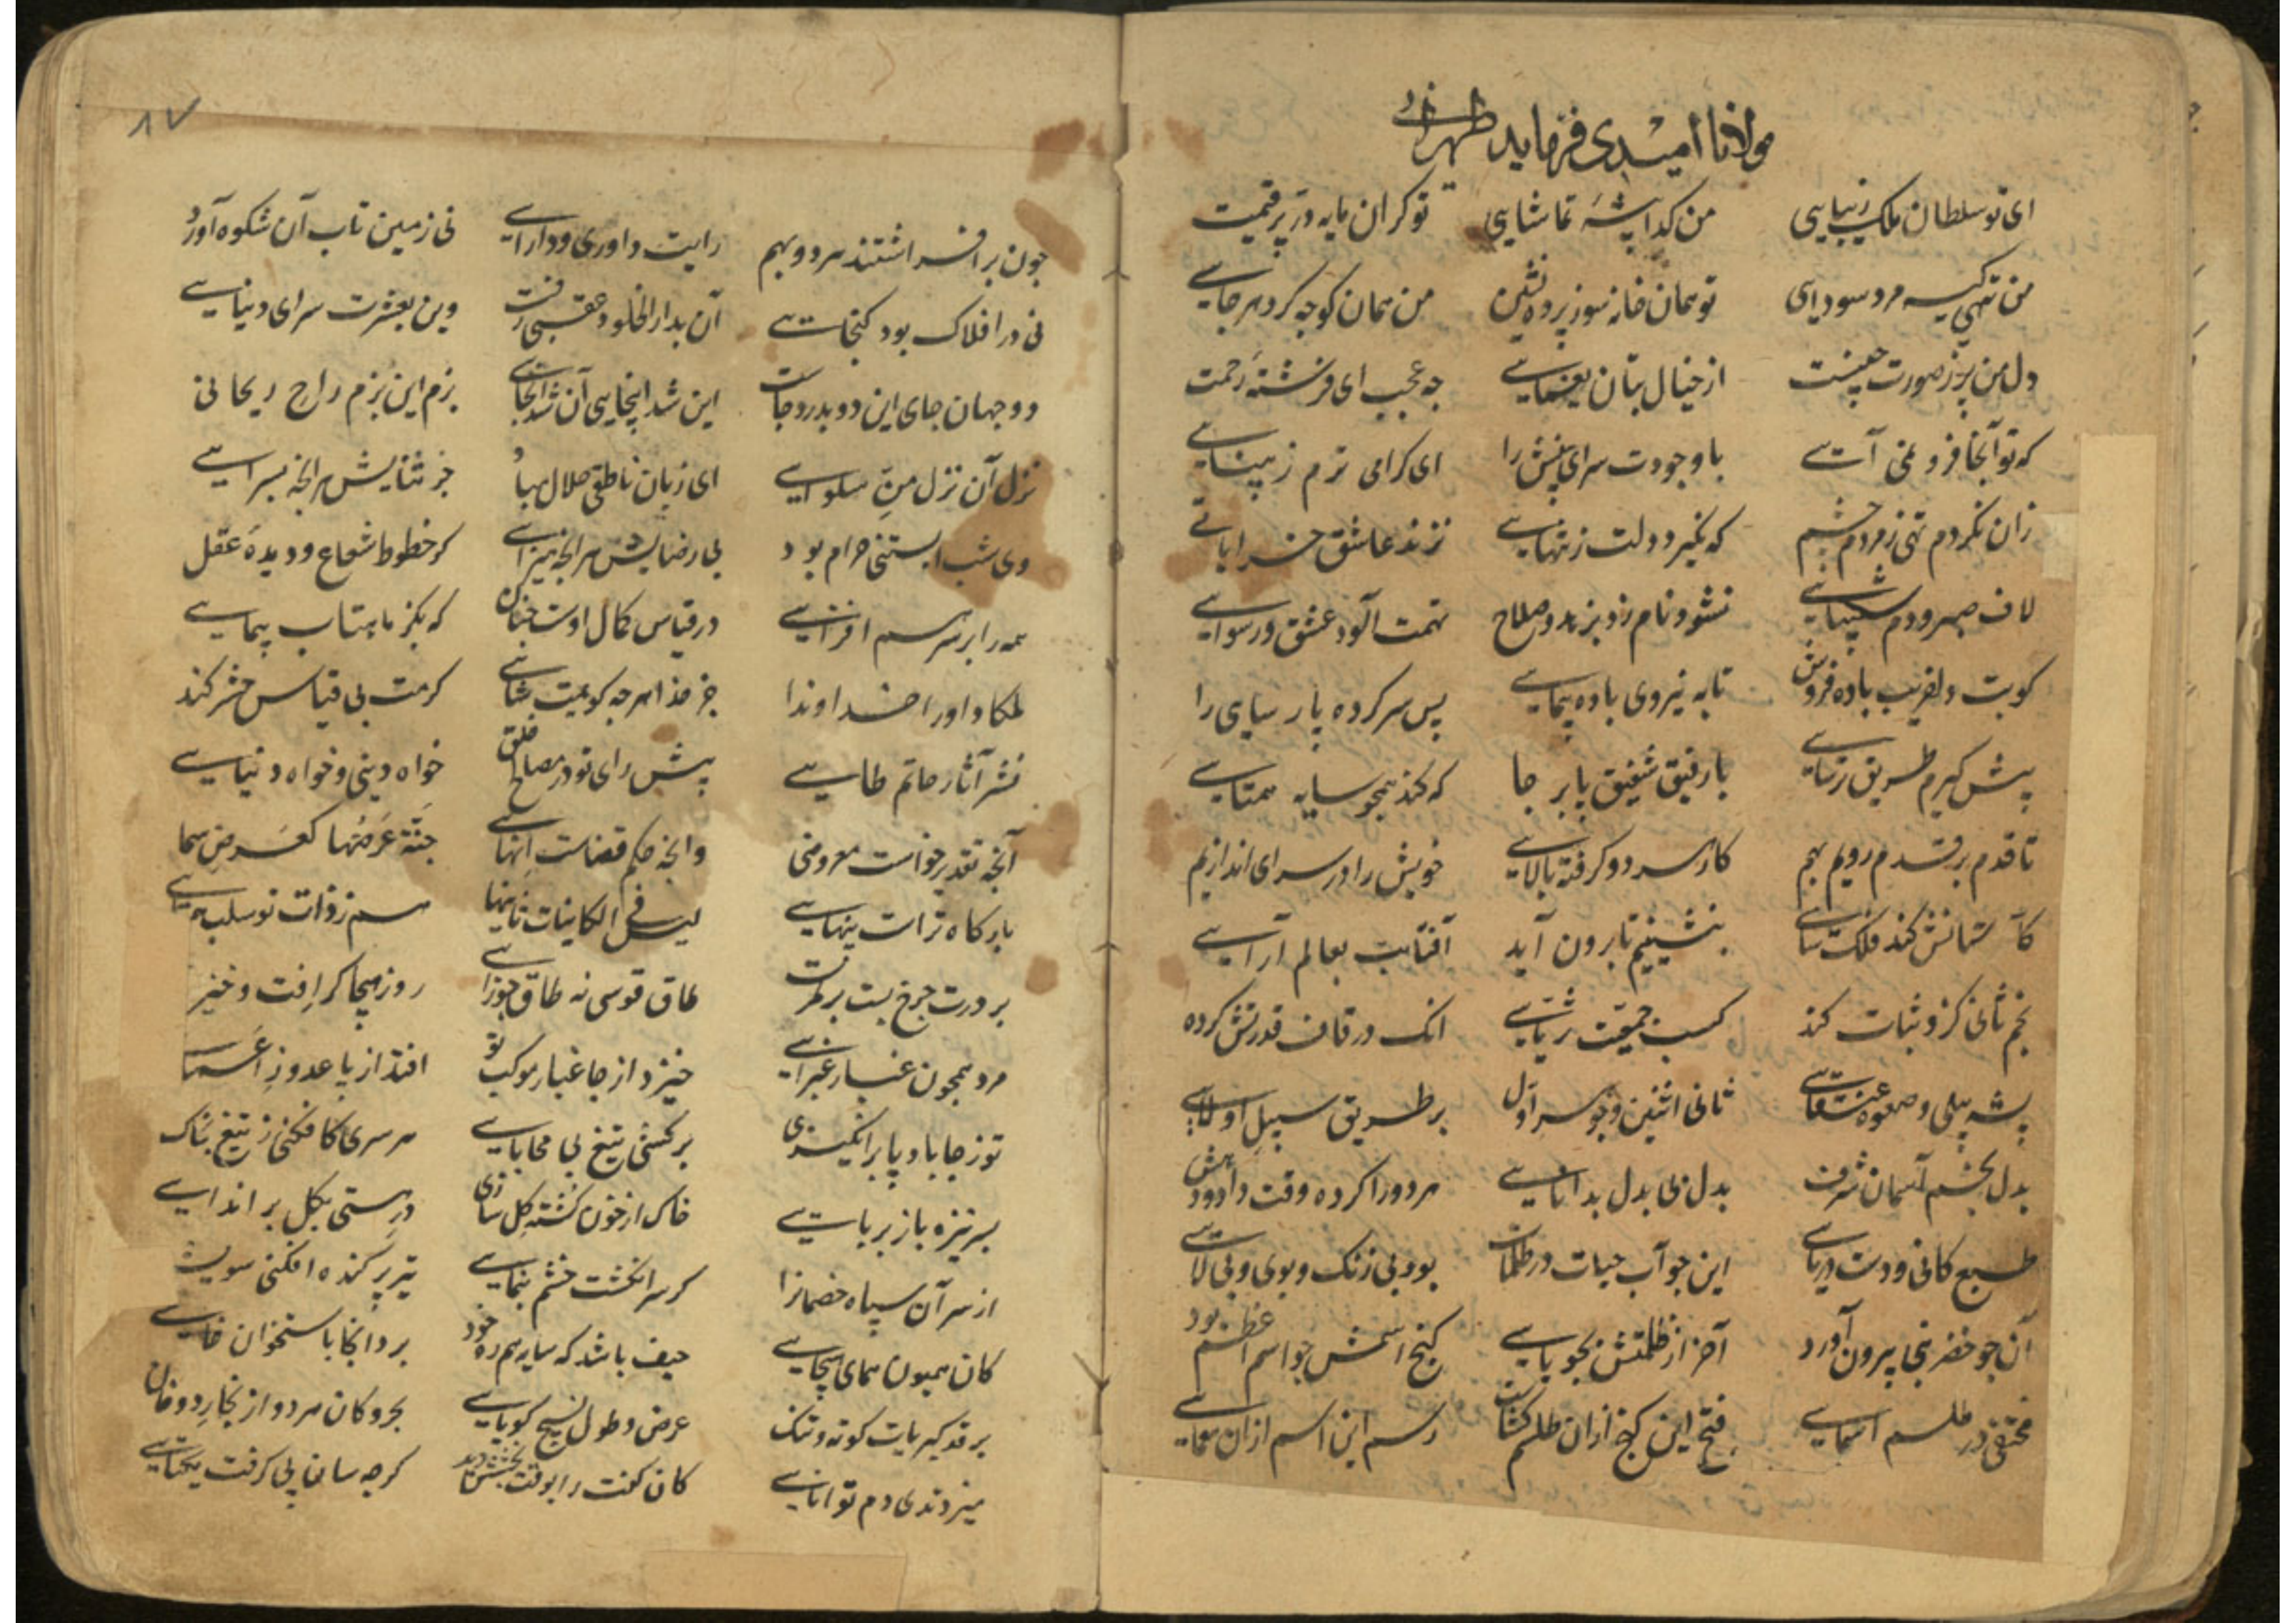 مولانا امیدی فرماید طهرانی
ای تو سلطان ملک زیبایی من کدا پشهٔ تماشایی تو کران مایه در پر قیمت
من تهی کیسه مرد سودای تو همان خانه سوز پرده نشین من همان کوجه کرد هر جایی
دل من پر ز صورت چینست از خیال بتان یغمایی جه عجب ای فرشتهٔ رحمت
که تو آنجا فرو نمی آیی با وجودت سرای بینش را ای کرامی ترم ز بینایی
زان نکردم تهی ز مردم چشم که نکیرد دلت ز تنهایی نزند عاشق خراباتی
لاف صبر و دم شکیبایی نشود نام زد بزهد و صلاح تهمت آلود عشق و رسوایی
کوبت دلفریب باده فروش تا به نیروی باده پیمایی پس سر کرده پارسایی را
پیش کیرم طریق ترسایی با رفیق شفیق پا بر جا که کند همچو سایه همتایی
تا قدم بر قدم رویم بهم کار هر دو کرفته بالایی خویش را در سرای اندازیم
کآستانش کند فلک سایی بنشینیم تا برون آید آفتابت بعالم آرایی
نجم ثانی کزو ثبات کند کسب جمعیت ثریایی انک در قاف قدرتش کرده
پشه پیلی و صعوه عنقایی ثانی اثنین و جوهر اول بر طریق سبیل اولایی
بدل نجم آسمان شرف بدل بی بدل بدانایی هر دو را کرده وقت دادودهش
طبع کانی و دست دریایی این جو آب حیات در ظلمات بود بی رنک و بوی و بی لایی
آن جو خضر نجا بیرون آورد آخر از ظلمتش بجویایی کنج اسمش جو اسم اعظم بود
مختفی در طلسم اسمایی فتح این کنج ازان طلسم کشاست رسم این اسم ازان معمایی
جون بر افراشتند هر دو بهم رایت داوری و دارایی نی زمین تاب آن شکوه آورد
نی در افلاک بود کنجایی آن بدار الخلود عقبی رفت وین بعشرت سرای دنیایی
دو جهان جای این دو بدر دجاست این شد اینجایی آن شد آنجایی بزم این بزم راح ریحانی
نزل آن نزل من سلوایی ای زبان ناطق حلال مباد جز ثنایش هر انچه بسرایی
وی شب آبستنی حرام بود بی رضایش هر انچه میزایی کر خطوط شعاع و دیدهٔ عقل
همه را بر سر هم افزایی در قیاس کمال اوست جنان که بکز ماهتاب پیمایی
ملکا داورا خداوندا جز خدا هر جه کویمت شایی کرمت بی قیاس حشر کند
نشر آثار حاتم طایی پیش رای تو در مصالح خلق خواه دینی و خواه دنیایی
آنچه تقدیر خواست معروضی وانچه حکم قضاست انهایی جنة عرضها کعرض سما
بارکاه تراست پنهایی لیس فی الکاینات ثانیها هم ز ذات تو سلب همتایی
بر درت جرخ بست بر کمرت طاق قوسی نه طاق جوزایی روز هیجا کر افت و خیز
مرد همچون غبار غبرایی خیزد از جا غبار موکب تو افتد از پا عدو ز اعمایی
تو ز جا باد پا برانکیزی برکشی تیغ بی محابایی هر سری کافکنی ز تیغ بخاک
بسر نیزه باز بربایی خاک از خون کشته کل سازی درستی بکل بر اندایی
از سر آن سپاه خصمانرا کر سر انکشت خشم بنمایی تیر پر کنده افکنی سویش
کان همیون همای هیجایی حیف باشد که سایه همره خود برد آنجا باستخوان خایی
بر قد کبریات کوته و تنک عرض و طول نسیج کویایی بحر و کان هر دو از بخار و دخان
میزدندی دم توانایی کان کفت را بوقت بخشش دید کرجه سان پی کرفت یکتایی
۸۷